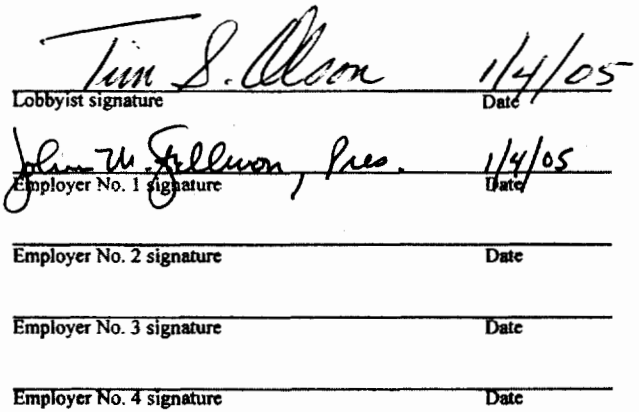 Tim S. Olson 1/4/05
Lobbyist signature Date
John M. , Pres. 1/4/05
Employer No. 1 signature Date
Employer No. 2 signature Date
Employer No. 3 signature Date
Employer No. 4 signature Date